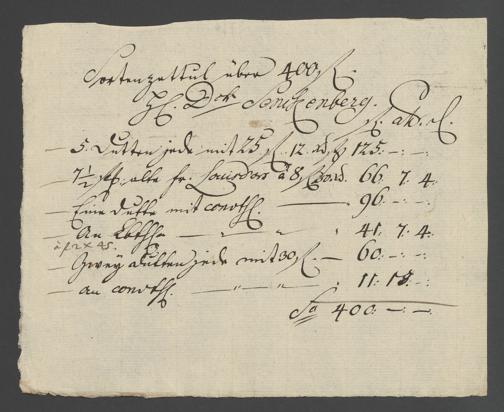 Sortenzettul über 400 f.
H. Dor Senckenberg.
f. alb. d.
— 5. Dutten jede mit 25 f. 12. 125. — —
— 7½ alte fr. Louisdor à 8 66. 7. 4.
— Eine dutte mit convth. — 96. — —
— An Lbthlr — " — " — 41. 7. 4.
à f 2 x 45.
— Zwey dutten jede mit 30 f. — 60. — —
— an convth. — " — " — 11. 18. —
Sa 400. — —